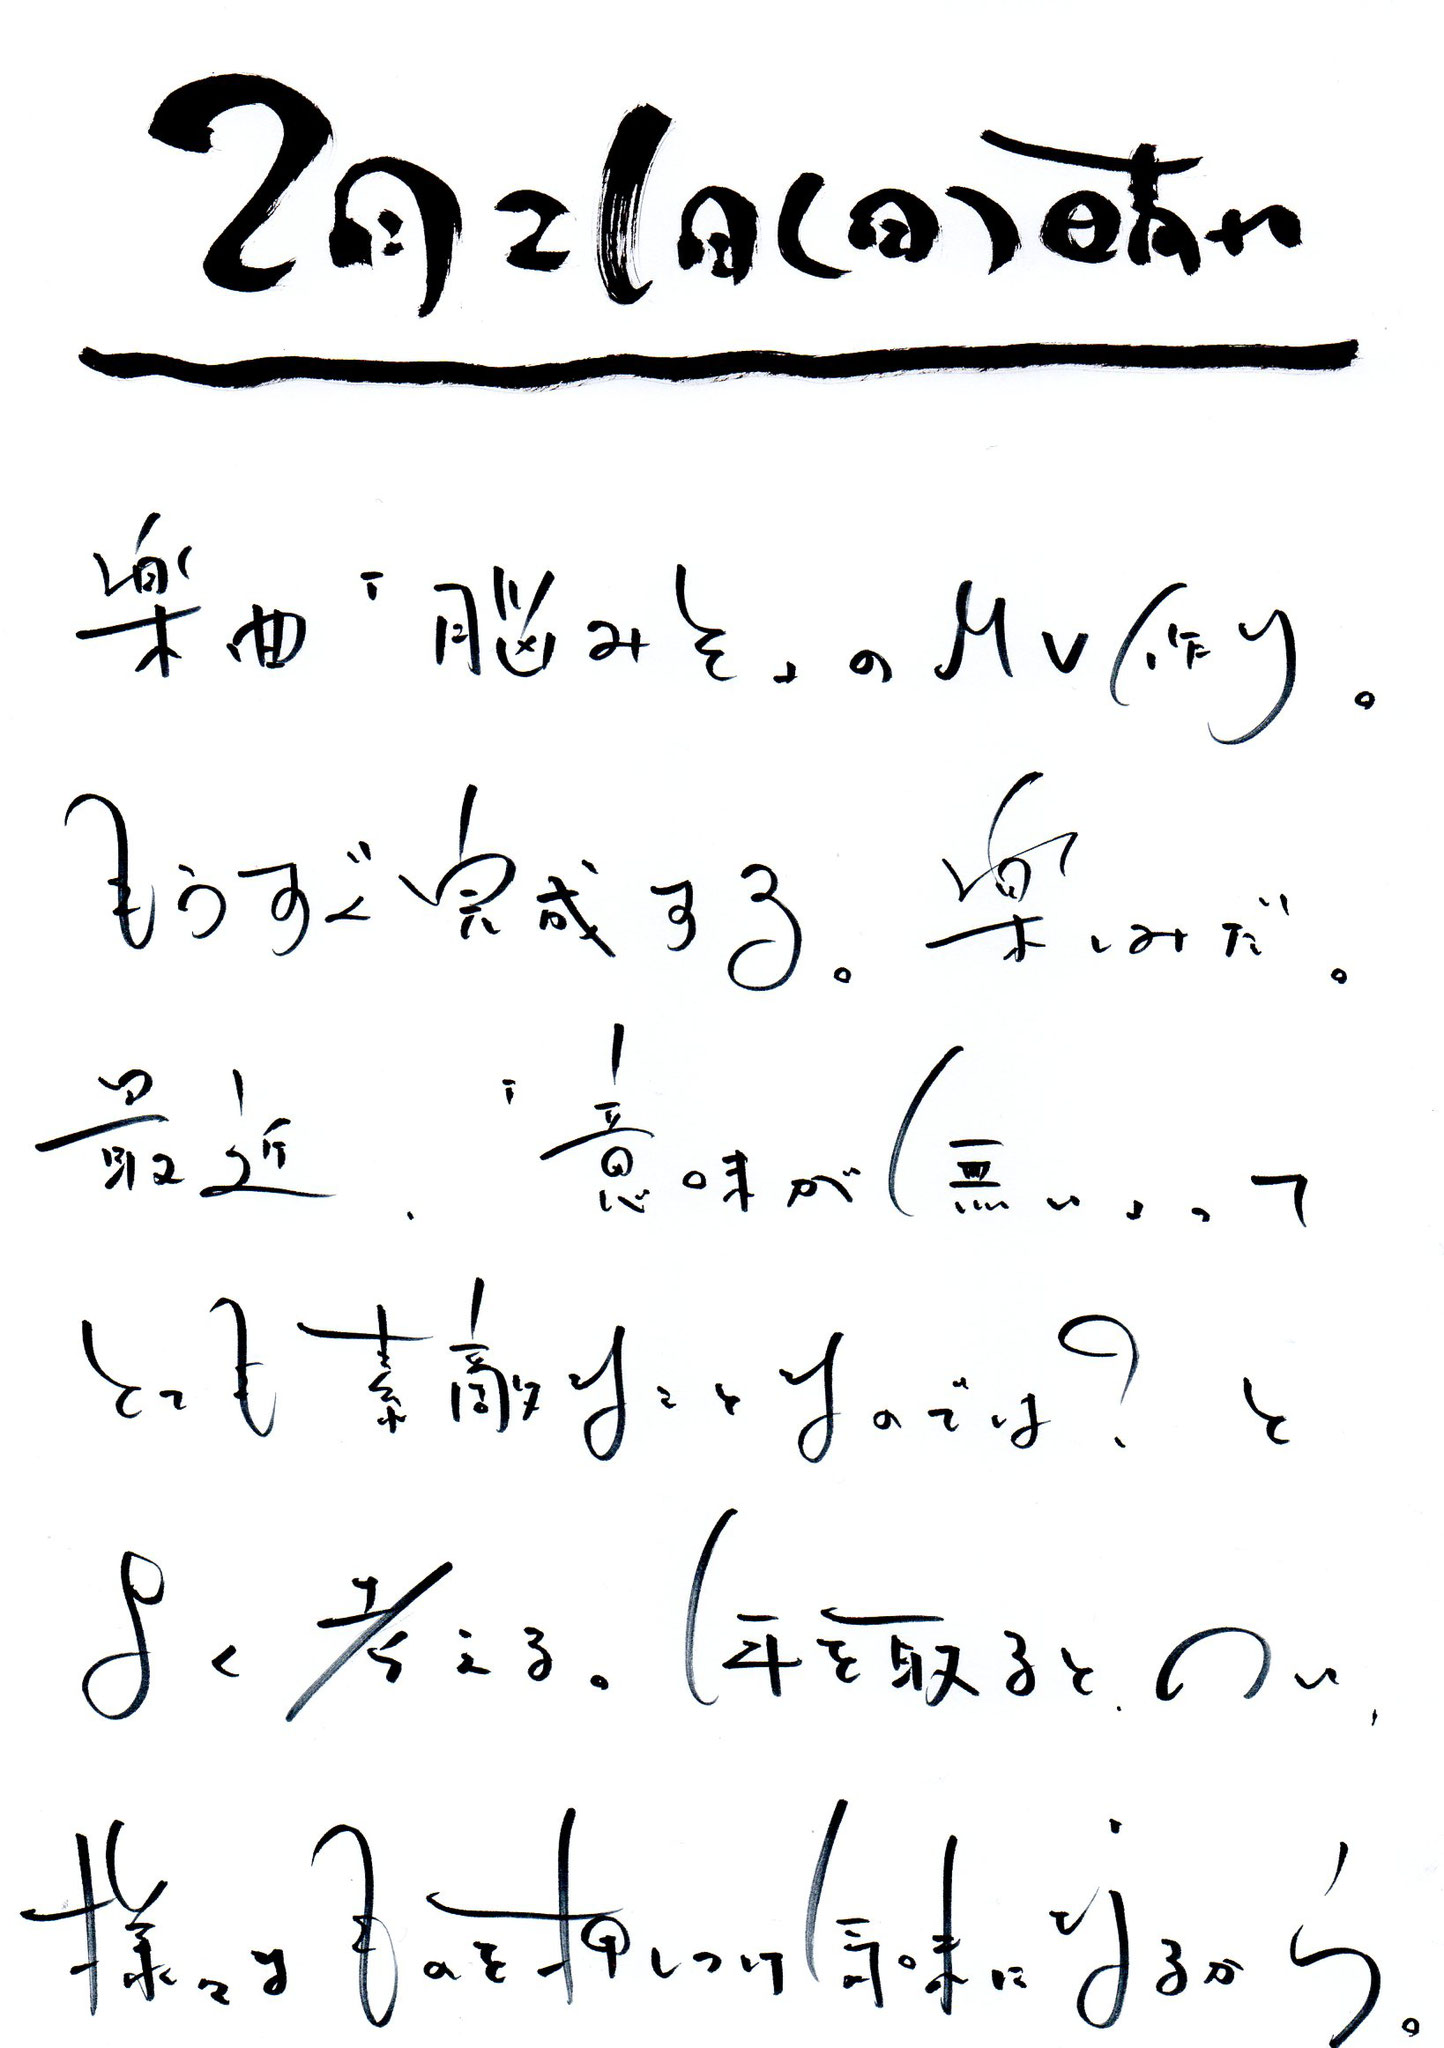 2月21日(日)晴れ
楽曲「脳みそ」のMV作り。
もうすぐ完成する。楽しみだ。
最近、「意味が無い」って
とても素敵なことなのでは？と
よく考える。年を取ると、つい、
様々なものを押しつけ気味になるから。